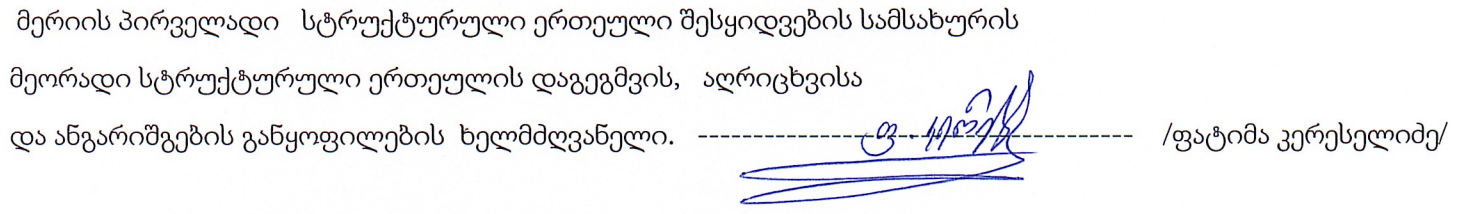 მერიის პირველადი სტრუქტურული ერთეული შესყიდვების სამსახურის
მეორადი სტრუქტურული ერთეულის დაგეგმვის, აღრიცხვისა
და ანგარიშგების განყოფილების ხელმძღვანელი. ------------------------------------------------ /ფატიმა კერესელიძე/